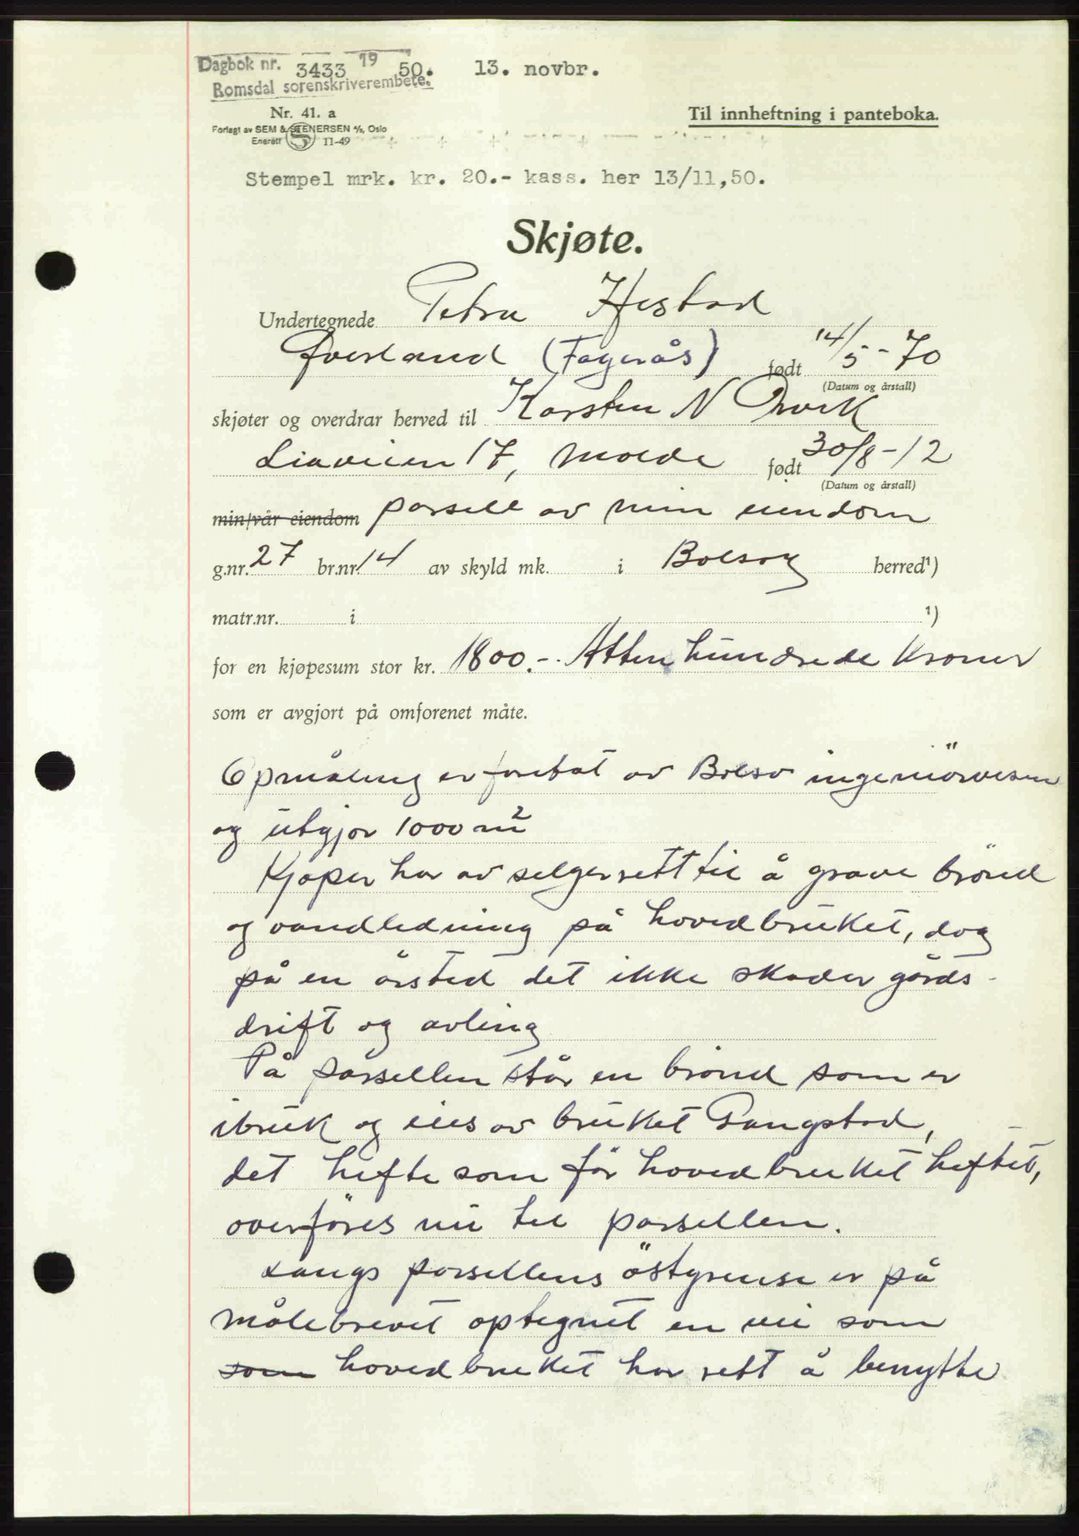 Dagbok nr. 3433 19 50. 13. novbr.
Romsdal sorenskriverembete.
Nr. 41. a
Forlagt av SEM & STENERSEN A/S, Oslo
Enerett 11-49
Til innheftning i panteboka.
Stempel mrk. kr. 20.- kass. her 13/11,50.
Skjøte.
Undertegnede Petra Hestad
Øverland (Fagerås) født 14/5-70
(Datum og årstall)
skjøter og overdrar herved til Karsten N Orvik
Liaveien 17, Molde født 30/8-12
(Datum og årstall)
min/vår eiendom parsell av min eiendom
g.nr. 27 br.nr. 14 av skyld mk. i Bolsøy herred¹)
matr.nr. i ¹)
for en kjøpesum stor kr. 1800.-. Atten hundrede Kroner
som er avgjort på omforenet måte.
Opmåling er foretat av Bolsø ingeniörvesen
og utgjør 1000 m²
Kjøper har av selger rett til å grave brönd
og vandledning på hovedbruket, dog
på en örsted det ikke skader gårds-
drift og avling
På parsellen står en brönd som er
ibruk og eies av bruket Gangstad,
det hefte som får hovedbruket heftet,
overföres nu til parsellen.
Langs parsellens östgrense er på
målebrevet optegnet en vei som
som hovedbruket har rett å benytte